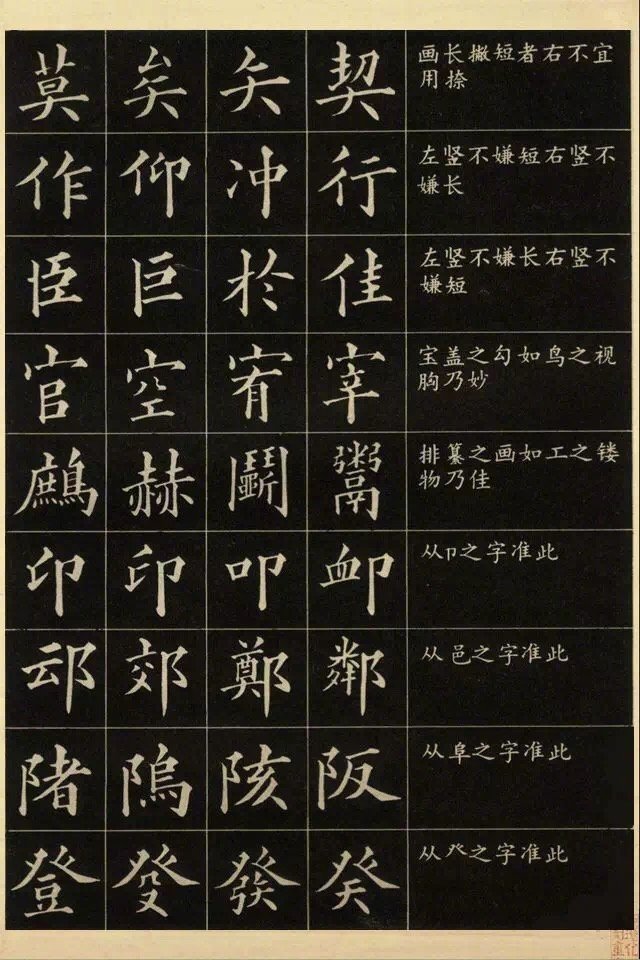 莫 矣 矢 契
画长撇短者右不宜
用捺
作 仰 冲 行
左竖不嫌短右竖不
嫌长
臣 巨 於 佳
左竖不嫌长右竖不
嫌短
官 空 宥 宰
宝盖之勾如鸟之视
胸乃妙
鷓 赫 鬭 鬻
排纂之画如工之镂
物乃佳
印 叩 卹
从卩之字准此
䢵 郊 鄭 鄰
从邑之字准此
陼 隖 陔 阪
从阜之字准此
登 癹 發 癸
从癶之字准此